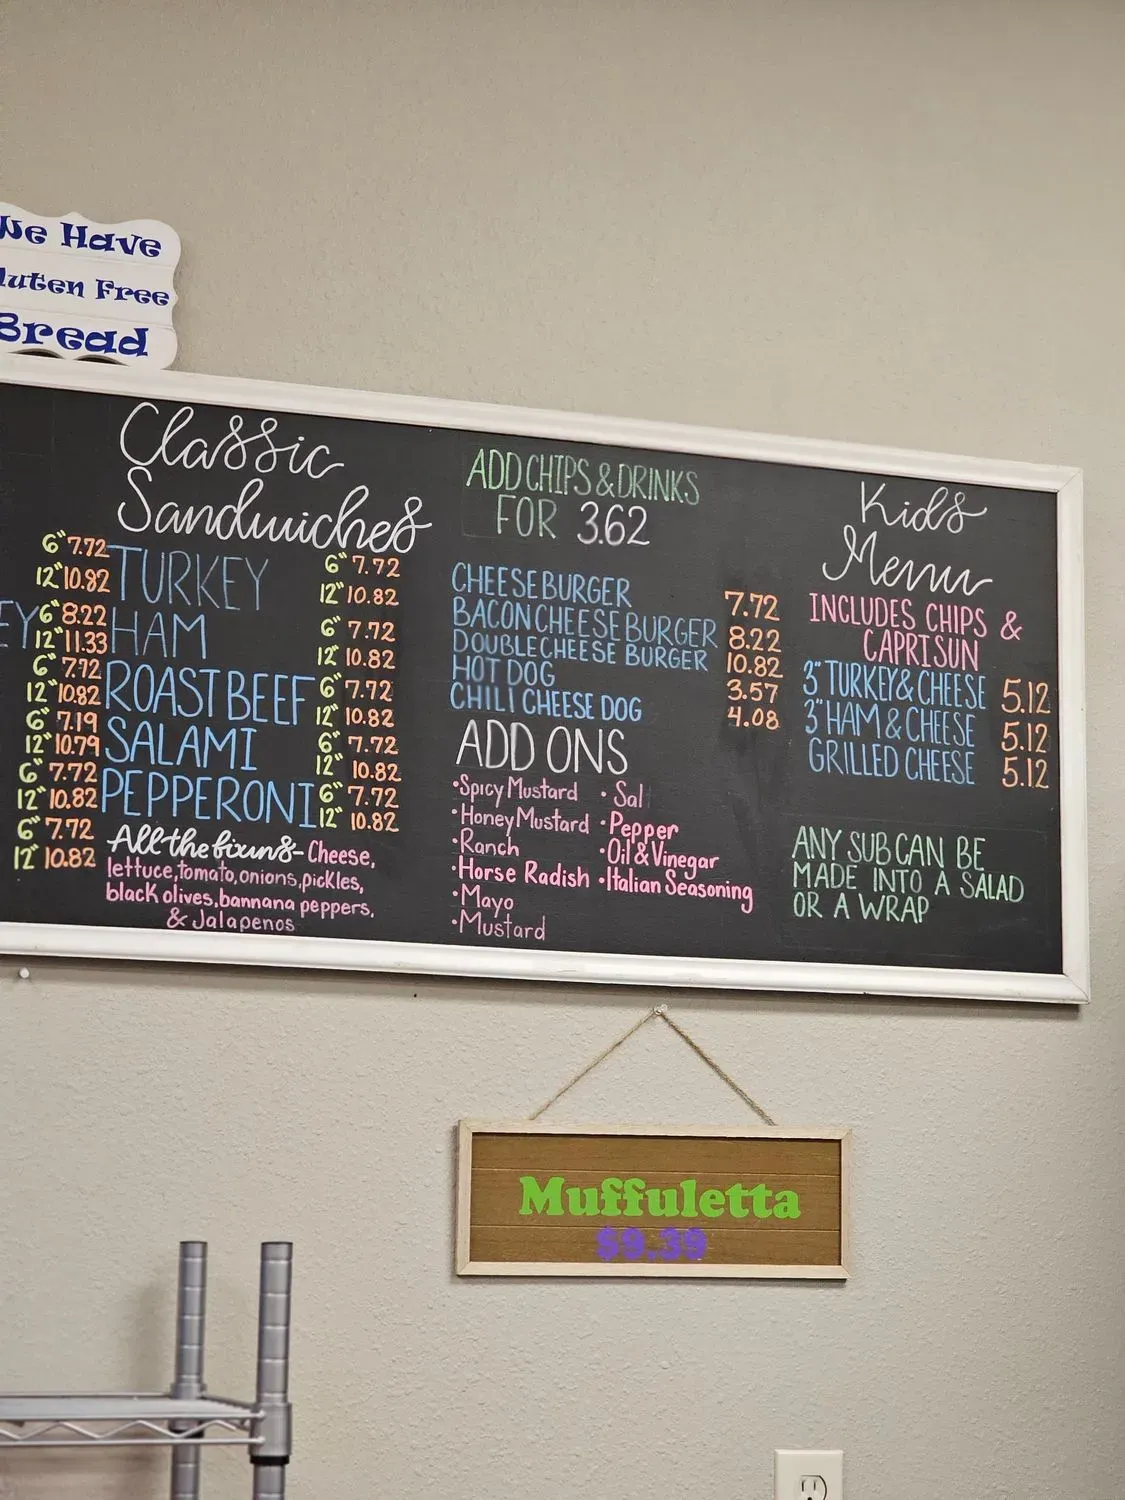 We Have
luten Free
Bread
Classic
Sandwiches
6" 7.72
12" 10.82
6" 8.22
12" 11.33
6" 7.72
12" 10.82
6" 7.19
12" 10.79
6" 7.72
12" 10.82
6" 7.72
12" 10.82
EY
TURKEY 6" 7.72
12" 10.82
HAM 6" 7.72
12" 10.82
ROAST BEEF 6" 7.72
12" 10.82
SALAMI 6" 7.72
12" 10.82
PEPPERONI 6" 7.72
12" 10.82
All the fixuns- Cheese,
lettuce, Tomato, onions, pickles,
black olives, bannana peppers,
& Jalapenos
ADD CHIPS & DRINKS
FOR 3.62
CHEESE BURGER 7.72
BACON CHEESE BURGER 8.22
DOUBLE CHEESE BURGER 10.82
HOT DOG 3.57
CHILI CHEESE DOG 4.08
ADD ONS
•Spicy Mustard
•Honey Mustard
•Ranch
•Horse Radish
•Mayo
•Mustard
•Sal
•Pepper
•Oil & Vinegar
•Italian Seasoning
Kids
Menu
INCLUDES CHIPS &
CAPRISUN
3" TURKEY & CHEESE 5.12
3" HAM & CHEESE 5.12
GRILLED CHEESE 5.12
ANY SUB CAN BE
MADE INTO A SALAD
OR A WRAP
Muffuletta
$9.39